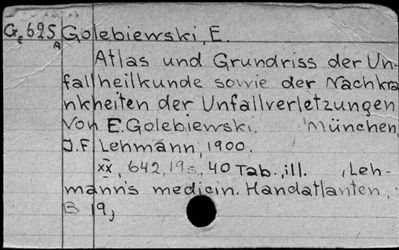 Ge 625 Golebiewski, E.
A
Atlas und Grundriss der Un-
fallheilkunde sowie der Nachkra
nkheiten der Unfallverletzungen
Von E. Golebiewski. München,
J.F. Lehmann, 1900.
XX, 642, 19 s., 40 Tab., ill. , Leh-
mann's medicin. Handatlanten,
B 19,